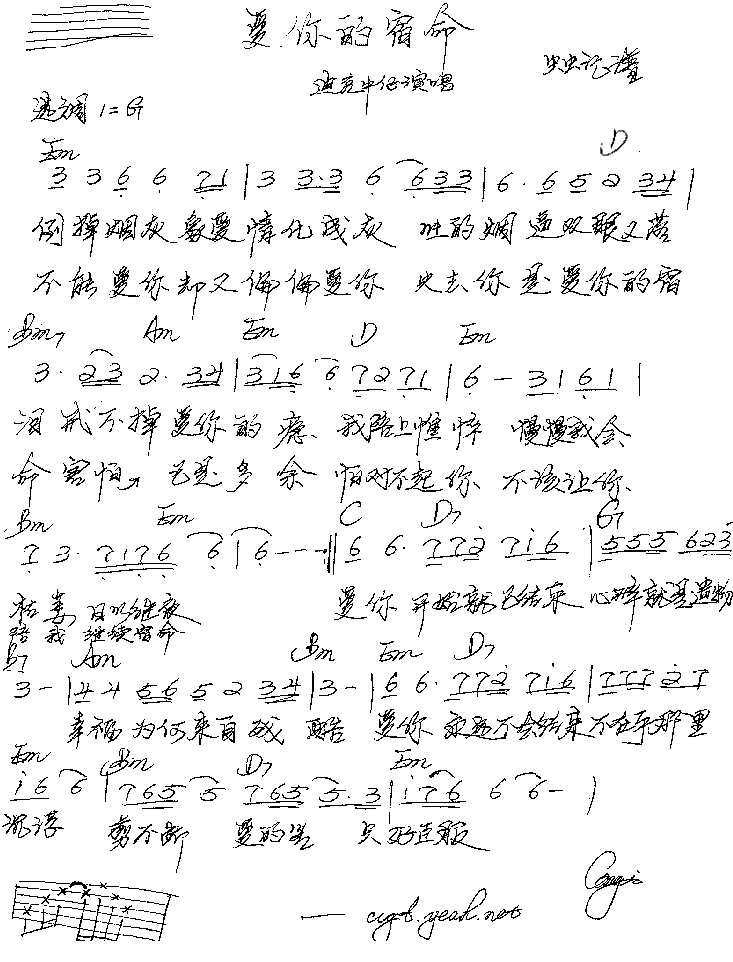 爱你的宿命
迪克牛仔演唱 虫虫记谱
选调 1=G
Em D
3 3 6 6 71 | 3 3·3 6 6 33 | 6· 6 5 2 34 |
倒掉烟灰象爱情化成灰 吐的烟 逼双眼又落
不能爱你却又偏偏爱你 失去你是爱你的宿
Bm7 Am Em D Em
3· 23 2· 34 | 316 6 7271 | 6 - 31 61 |
泪 戒不掉爱你的瘾、我陪上憔悴 慢慢我会
命 害怕 已是多余 怕对不起你 不该让你、
Bm Em C D7 G7
7 3· 7176 6 | 6 - - - :|| 6 6· 772 716 | 555 623
枯萎 日以继夜 爱你 开始就已结束 心碎就是遗物
陪我 继续宿命
B7 Am Bm Em D7
3 - | 44 56 5 2 34 | 3 - | 6 6· 772 716 | 777 27
幸福为何来自残 酷 爱你 永远不会结束不在乎那里
Em Bm D7 Em
i6 6 | 765 5 765 5·3 | i76 6 6 - |
沉浮 剪不断 爱的 只好臣服
— cygt.yeah.net